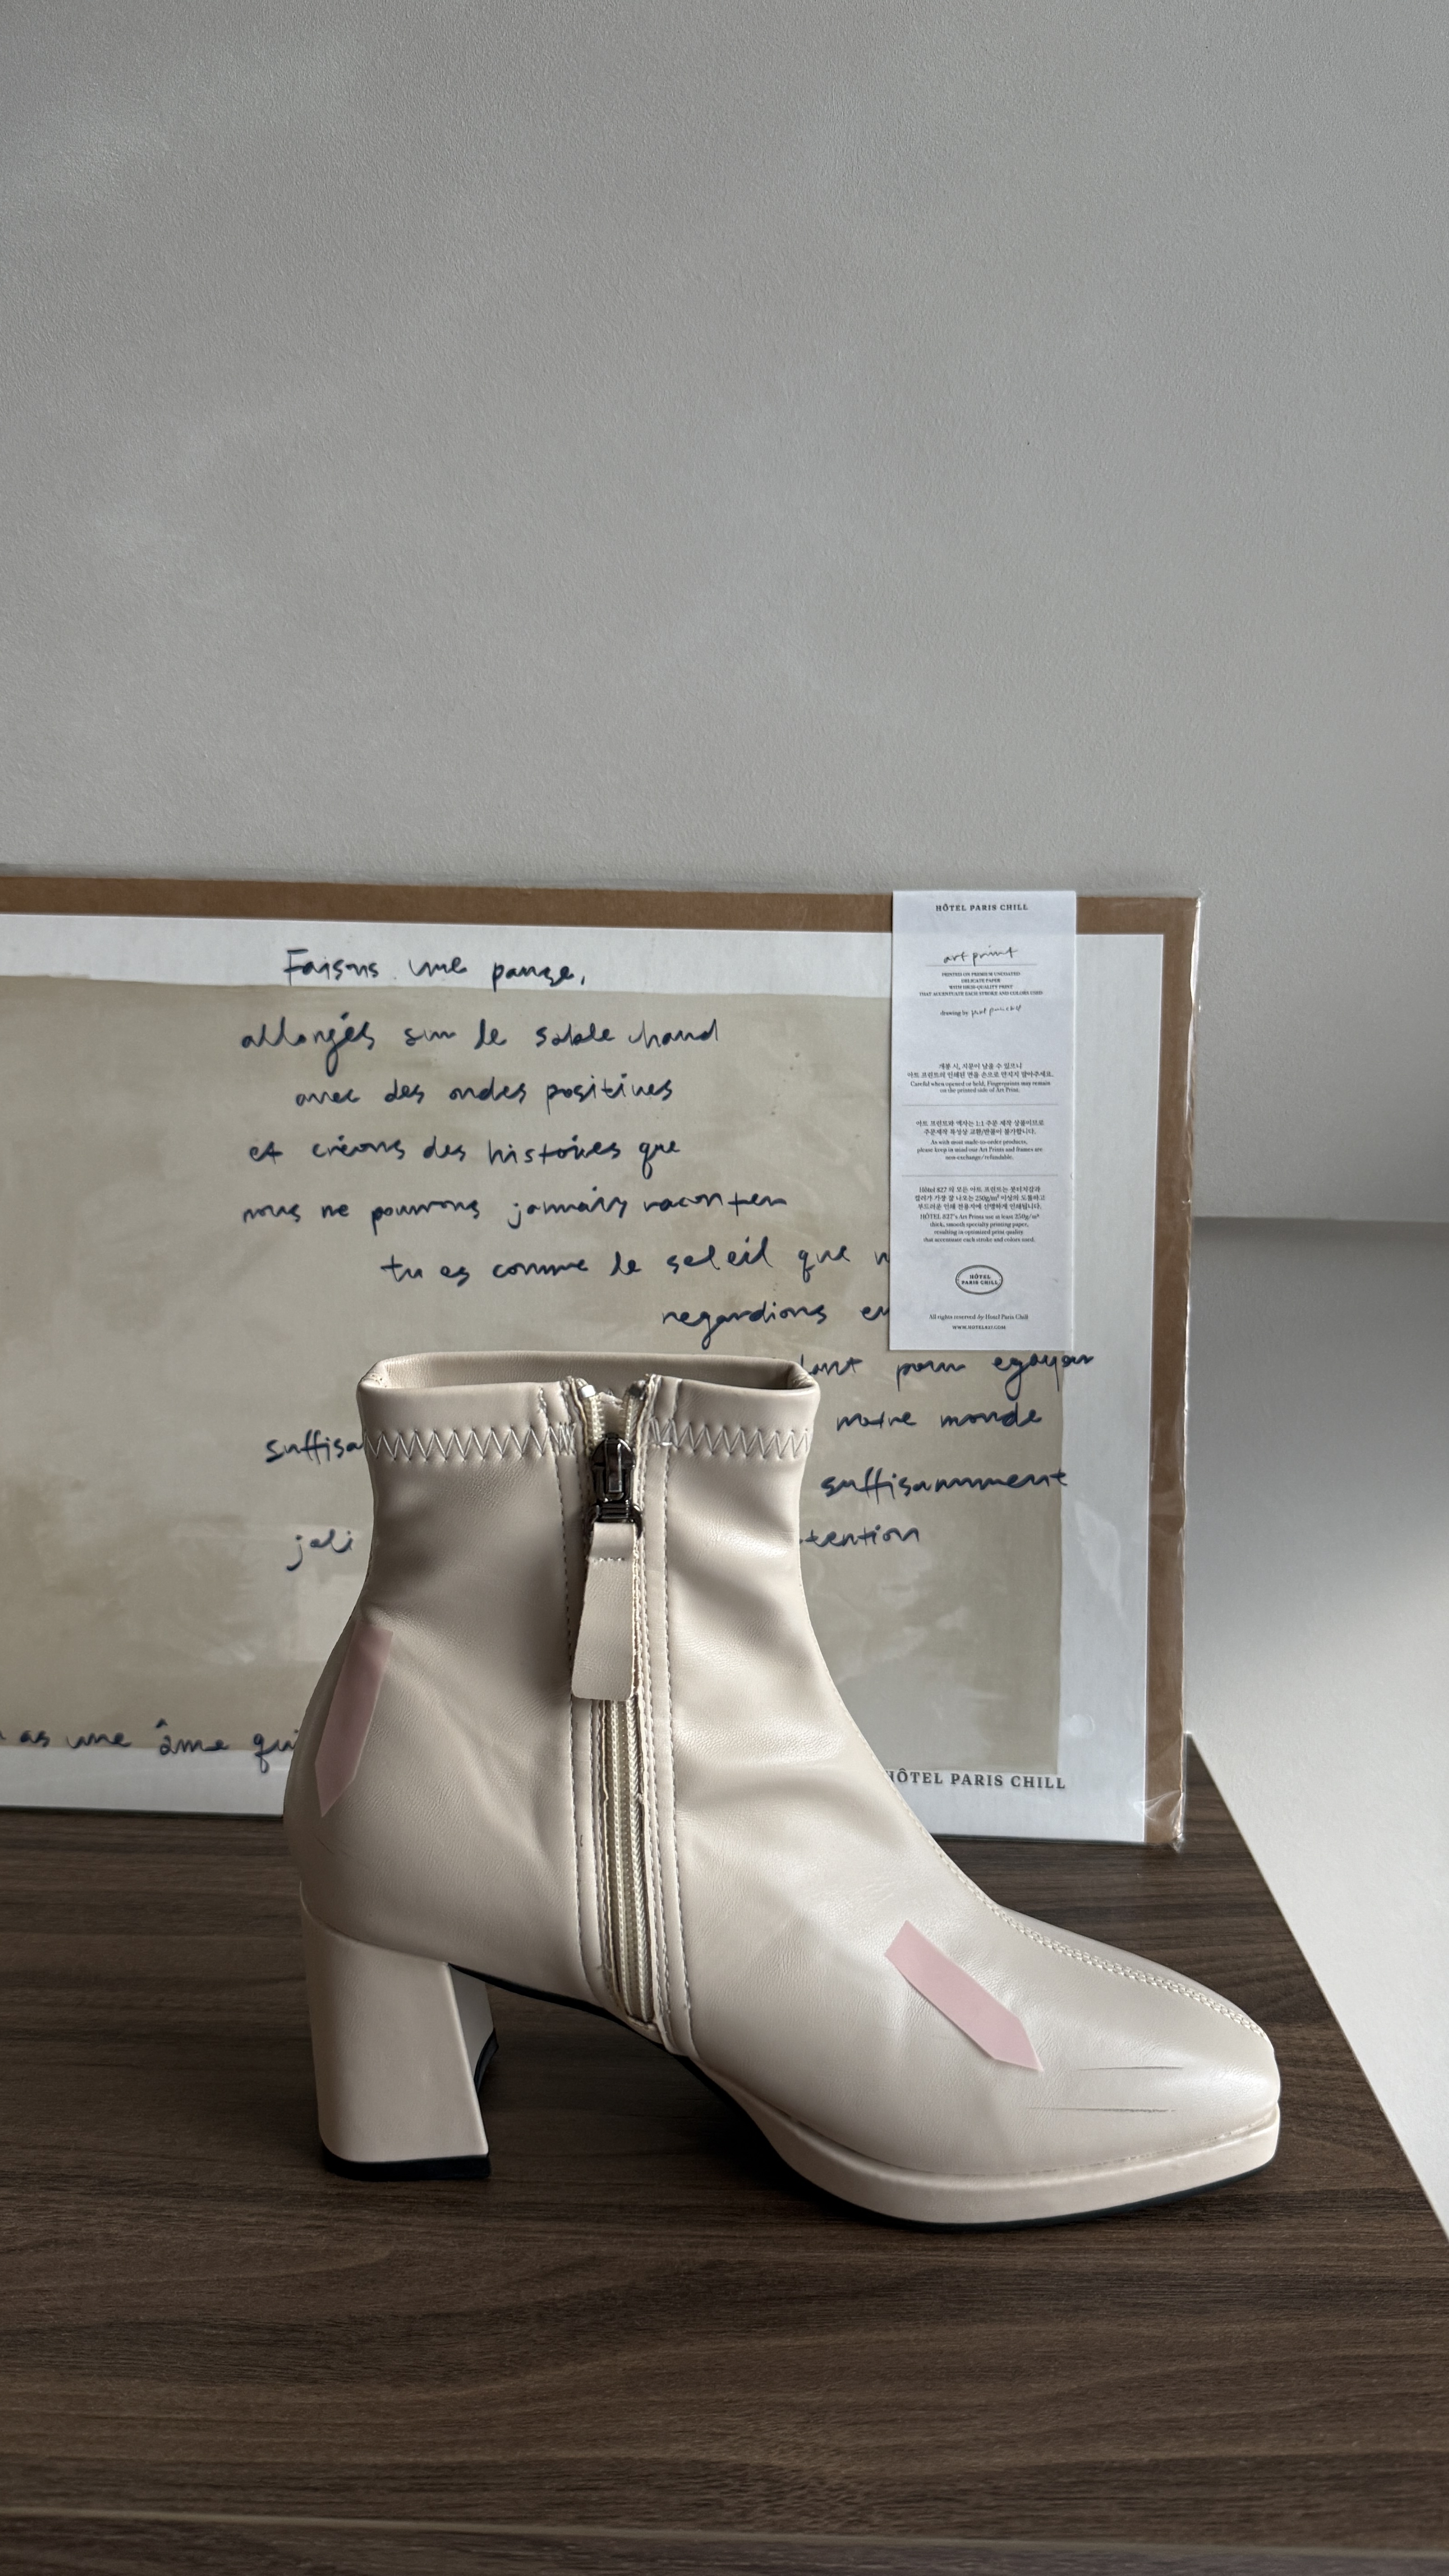 HÔTEL PARIS CHILL
art print
PRINTED ON PREMIUM UNCOATED
DELICATE PAPER
WITH HIGH-QUALITY PRINT
THAT ACCENTUATE EACH STROKE AND COLORS USED
drawing by
개봉 시, 지문이 남을 수 있으니
아트 프린트의 인쇄된 면을 손으로 만지지 말아주세요.
Careful when opened or held, Fingerprints may remain
on the printed side of Art Print.
아트 프린트와 액자는 1:1 주문 제작 상품이므로
주문제작 특성상 교환/반품이 불가합니다.
As with most made-to-order products,
please keep in mind our Art Prints and frames are
non-exchange/refundable.
Hôtel 827 의 모든 아트 프린트는 붓터치감과
컬러가 가장 잘 나오는 250g/m² 이상의 도톰하고
부드러운 인쇄 전용지에 선명하게 인쇄됩니다.
HÔTEL 827's Art Prints use at least 250g/m²
thick, smooth specialty printing paper,
resulting in optimized print quality
that accentuate each stroke and colors used.
HÔTEL
PARIS CHILL
All rights reserved by Hotel Paris Chill
WWW.HOTEL827.COM
Faisons une pause,
allongés sur le sable chaud
avec des ondes positives
et créons des histoires que
nous ne pourrons jamais raconter
tu es comme le soleil que
regardions
pour egayer
notre monde
suffisa
suffisamment
joli
tention
as une âme qui
HÔTEL PARIS CHILL